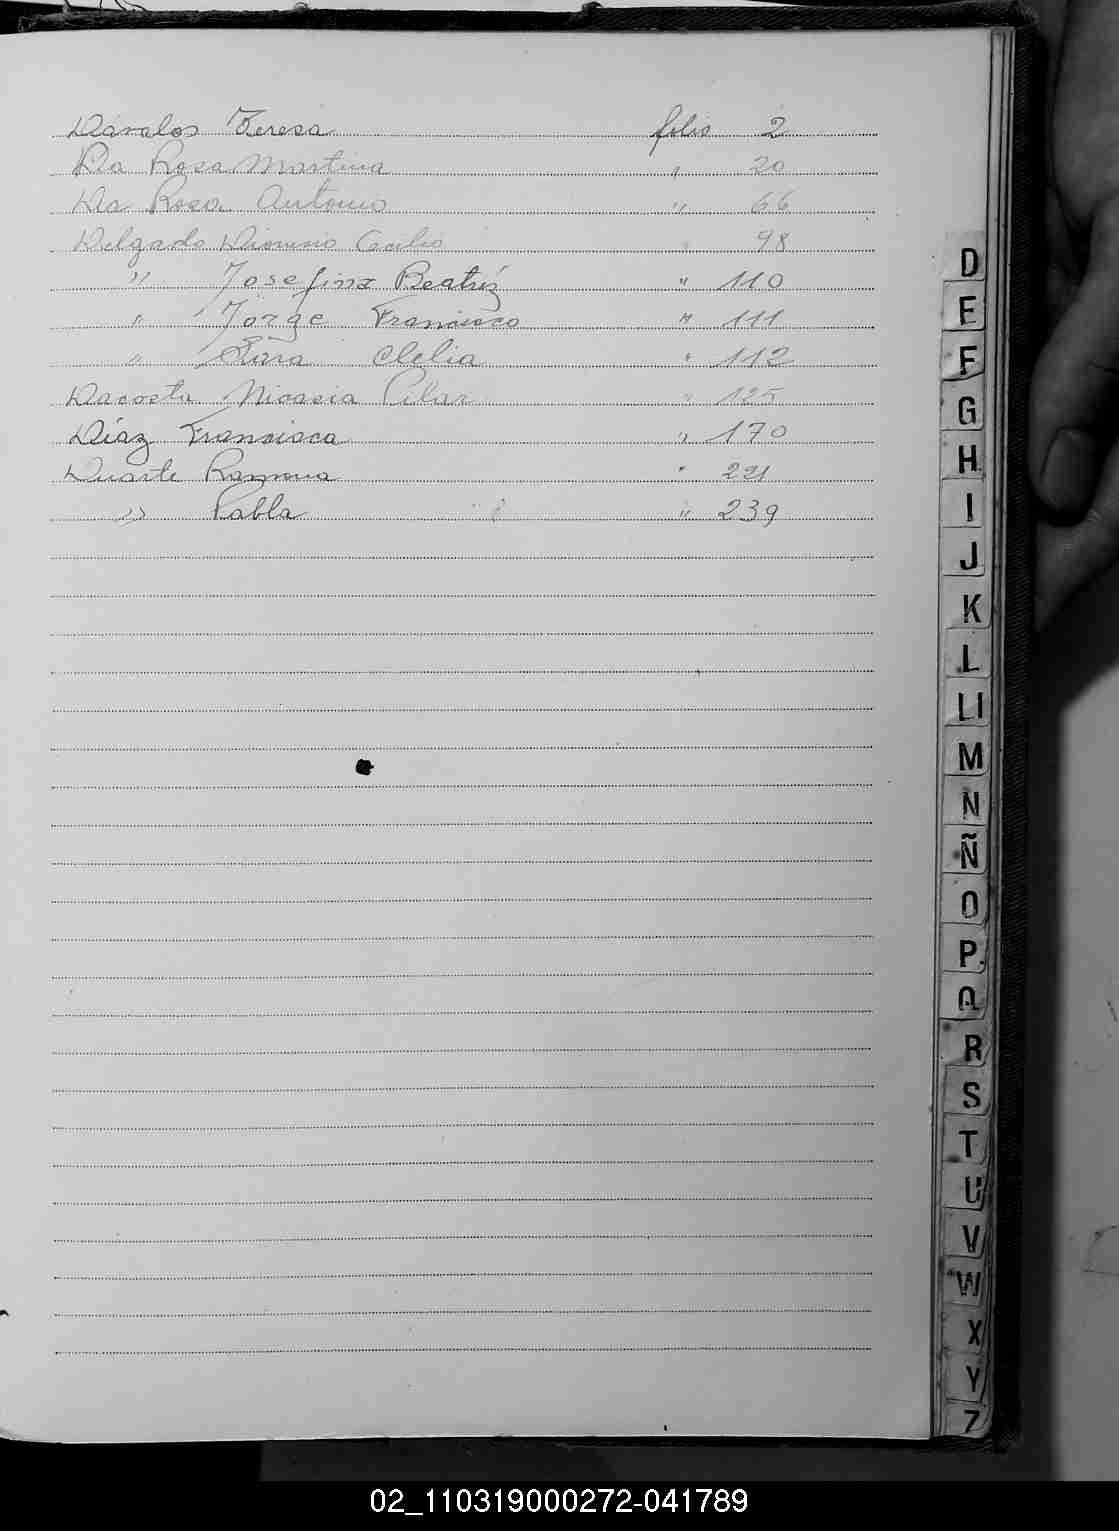 Dávalos Teresa folio 2
Da Rosa Martina " 20
Da Rosa Antonio " 66
Delgado Dionisio Cecilio " 98
" Josefina Beatríz " 110
" Jorge Francisco " 111
" Clelia " 112
Dacosta Nicasia Pilar " 125
Díaz Francisca " 170
Duarte Ramona "
" Pabla " 239
D
E
F
G
H
I
J
K
L
Ll
M
N
Ñ
O
P
Q
R
S
T
U
V
W
X
Y
Z
02_110319000272-041789